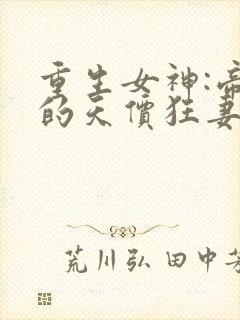 重生女神:帝
的天價狂妻
荒川弘 田中芳